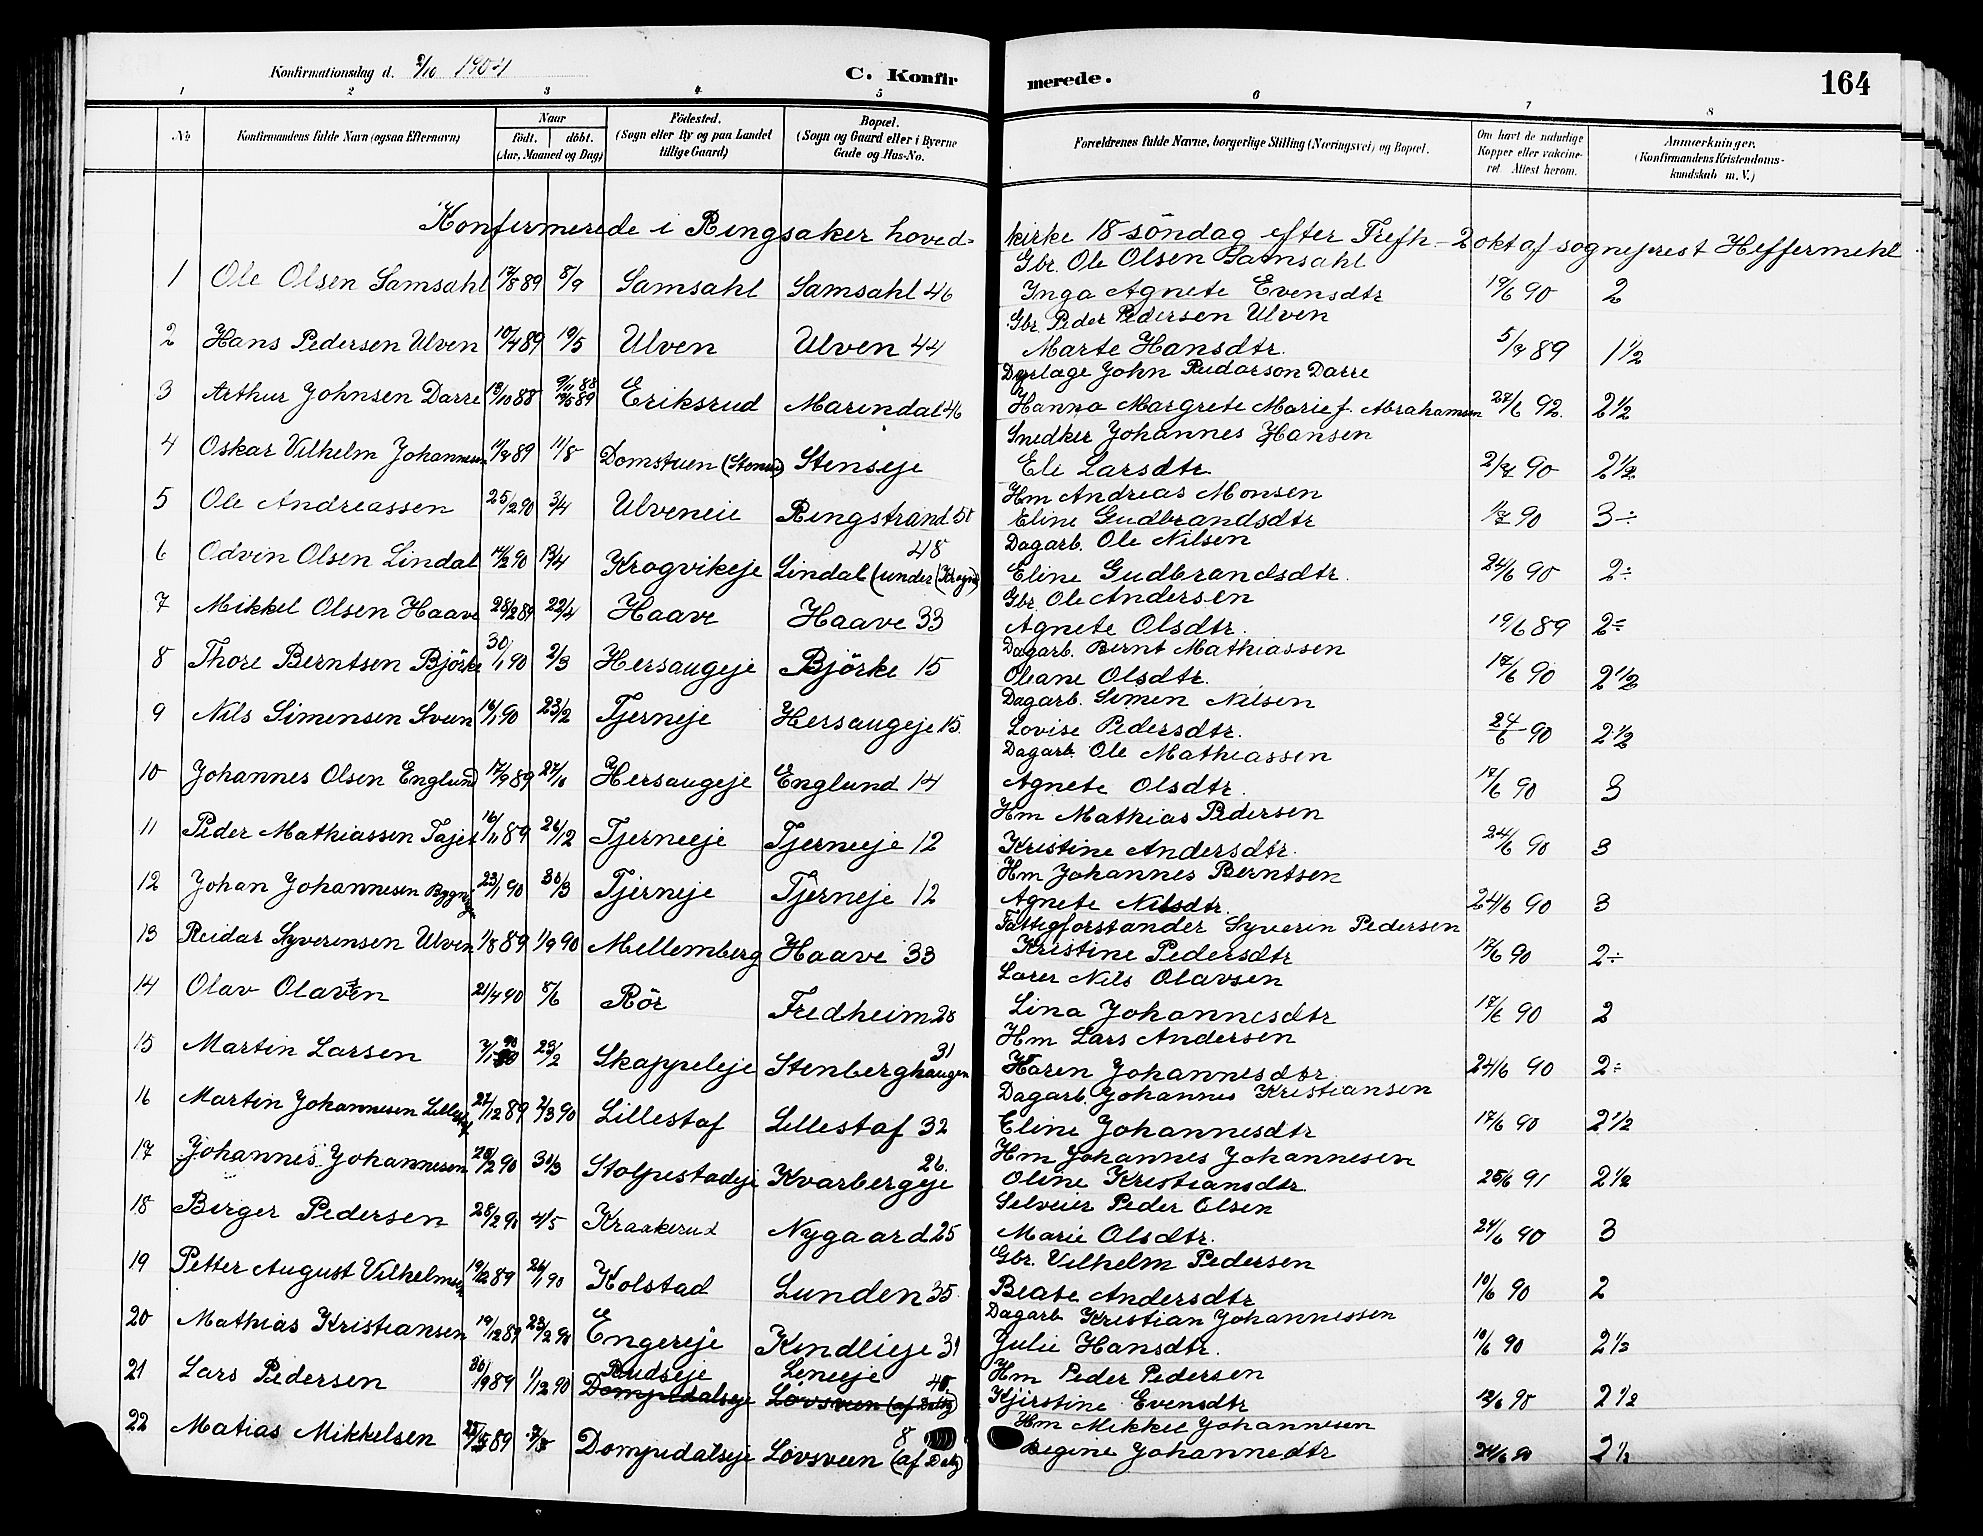 Konfirmationsdag d. 2/10 1904
C. Konfirmerede.
164
1 2 3 4 5 6 7 8
No. Konfirmandens fulde Navn (ogsaa Efternavn) Naar født. døbt. (Aar, Maaned og Dag) Fødested. (Sogn eller By og paa Landet tillige Gaard) Bopæl. (Sogn og Gaard eller i Byerne Gade og Hus-No. Forældrenes fulde Navne, borgerlige Stilling (Næringsvei) og Bopæl. Om havt de naturlige Kopper eller vakcineret. Attest herom. Anmærkninger. (Konfirmandens Kristendomskundskab m. V.)
Konfirmerede i Ringsaker hovedkirke 18 söndag efter Trefh - 2 okt af sogneprest Heffermehl
1 Ole Olsen Samsahl 17/8 89 8/9 Samsahl Samsahl 46 Gbr. Ole Olsen Samsahl Inga Agnete Evensdtr 19/6 90 2
2 Hans Pedersen Ulven 10/4 89 19/5 Ulven Ulven 44 Gbr. Peder Pedersen Ulven Marte Hansdtr. 5/7 89 1 1/2
3 Arthur Johnsen Darre 13/10 88 Eriksrud Marindal 46 Dyrlæge John Pedarson Darre Hanna Margrete Marie f. Abrahamsen 27/6 92. 2 1/2
4 Oskar Vilhelm Johannesen 11/7 89 11/8 Domstuen Stenseje Snedker Johannes Hansen Ele Larsdtr. 2/7 90 2 1/2
5 Ole Andreassen 25/2 90 3/4 Ulveneie Ringstrand 50 Hm Andreas Monsen Eline Gudbrandsdtr 1/7 90 3÷
6 Odvin Olsen Lindal 14/2 90 13/4 Krogvikeje Lindal (under 48 Dagarb. Ole Nilsen Eline Gudbrandsdtr. 24/6 90 2÷
7 Mikkel Olsen Haave 28/2 89 22/4 Haave Haave 33 Gbr. Ole Andersen Agnete Olsdtr. 19/6 89 2÷
8 Thore Berntsen Björke 30/1 90 2/3 Hersaugeje Björke 15 Dagarb. Bernt Mathiassen Oleane Olsdtr. 17/6 90 2 1/2
9 Nils Simensen Sveen 16/1 90 23/2 Tjerneje Hersaugeje 15. Dagarb. Simen Nilsen Lovise Pedersdtr. 24/6 90 2 1/2
10 Johannes Olsen Englund 17/9 89 27/10 Hersaugeje Englund 14 Dagarb. Ole Mathiassen Agnete Olsdtr. 17/6 90 3
11 Peder Mathiassen Tajet 16/11 89 26/12 Tjerneeje Tjerneeje 12 Hm Mathias Pedersen Kristine Andersdtr. 24/6 90 3
12 Johan Johannesen 23/1 90 30/3 Tjerneje Tjerneje 12 Hm Johannes Berntsen Agnete Nilsdtr. 24/6 90 3
13 Reidar Syverensen Ulven 1/8 89 1/9 90 Mellemberg Haave 33 Fattigforstander Syverin Pedersen Kristine Pedersdtr 17/6 90 2÷
14 Olav Olavsen 21/4 90 8/6 Rör Fredheim 28 Lærer Nils Olavsen Lina Johannesdtr 17/6 90 2
15 Martin Larsen 7/1 90 23/2 Skappeleje Stenberghaugen 31 Hm Lars Andersen Karen Johannesdtr 24/6 90 2÷
16 Martin Johannesen Lillestaf 27/12 89 2/3 90 Lillestaf Lillestaf 32 Dagarb. Johannes Kristiansen Eline Johannesdtr 17/6 90 2 1/2
17 Johannes Johannesen 20/2 90 31/3 Stolpestadeje Kvarbergeje 26. Hm Johannes Johannesen Oline Kristiansdtr. 25/6 91 2 1/2
18 Birger Pedersen 28/2 90 4/5 Kraakerud Nygaard 25 Selveier Peder Olsen Marie Olsdtr. 24/6 90 3
19 Petter August Vilhelmsen 19/12 89 26/1 90 Kolstad Lunden 35. Gbr. Vilhelm Pedersen Beate Andersdtr 10/6 90 2
20 Mathias Kristiansen 19/12 89 23/2 90 Engereje Kindlieje 31 Dagarb Kristian Johannessen Julie Hansdtr. 10/6 90 2 1/2
21 Lars Pedersen 30/9 89 1/12 90 Rudseje Domjudalseje Leneeje 40 Lövsveen (af Hm Peder Pedersen Kjirstine Evensdtr 12/6 90 2 1/2
22 Matias Mikkelsen 89 Domjudalseje Lövsveen (af 8 Hm Mikkel Johannesen Regine Johannedtr 24/6 90 2 1/2